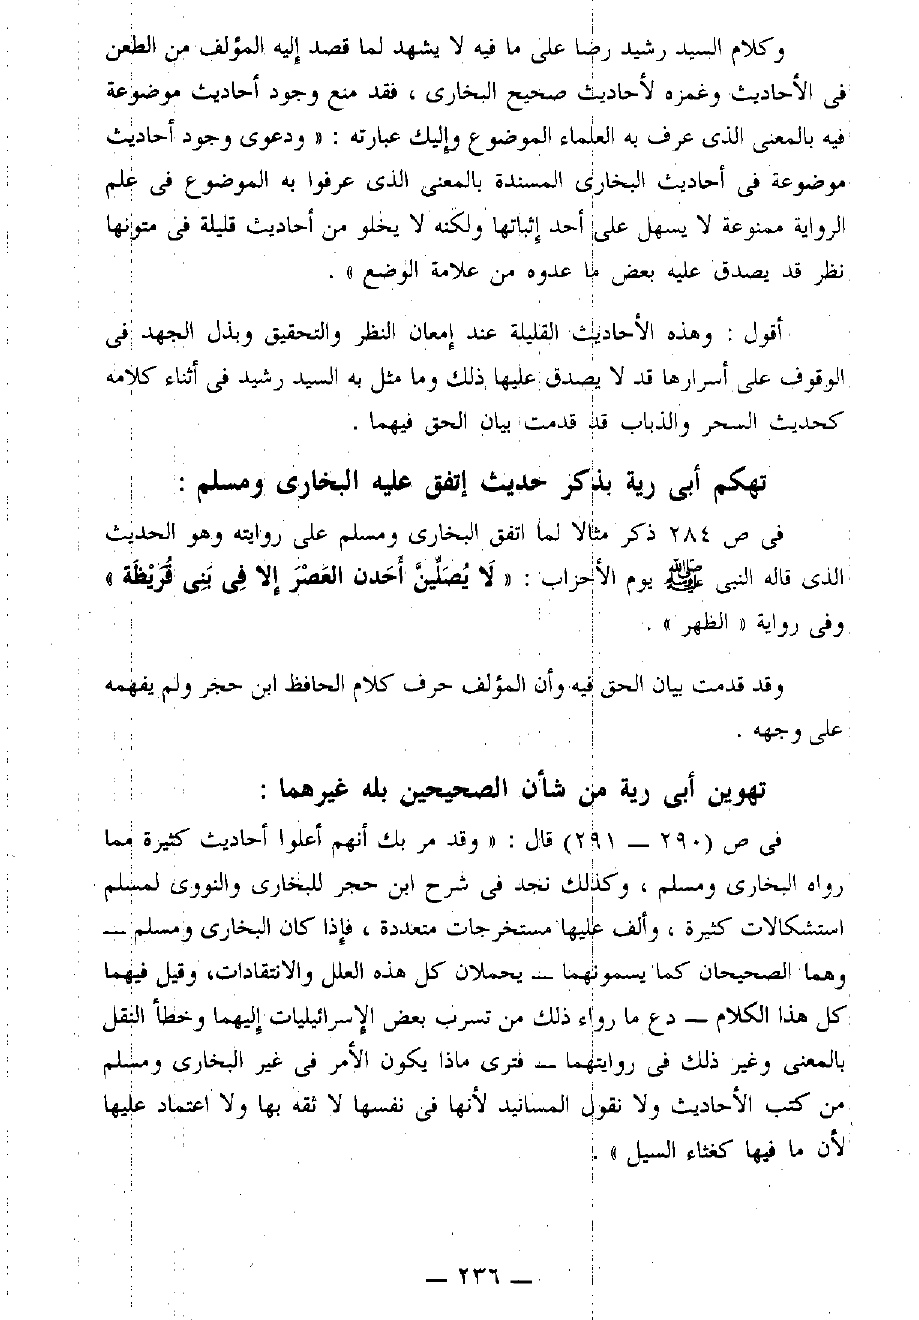 وكلام السيد رشيد رضا على ما فيه لا يشهد لما قصد إليه المؤلف من الطعن
فى الأحاديث وغمزه لأحاديث صحيح البخارى ، فقد منع وجود أحاديث موضوعة
فيه بالمعنى الذى عرف به العلماء الموضوع وإليك عبارته : « ودعوى وجود أحاديث
موضوعة فى أحاديث البخارى المسندة بالمعنى الذى عرفوا به الموضوع فى علم
الرواية ممنوعة لا يسهل على أحد إثباتها ولكنه لا يخلو من أحاديث قليلة فى متونها
نظر قد يصدق عليه بعض ما عدوه من علامة الوضع » .
أقول : وهذه الأحاديث القليلة عند إمعان النظر والتحقيق وبذل الجهد فى
الوقوف على أسرارها قد لا يصدق عليها ذلك وما مثل به السيد رشيد فى أثناء كلامه
كحديث السحر والذباب قد قدمت بيان الحق فيهما .
تهكم أبى رية بذكر حديث إتفق عليه البخارى ومسلم :
فى ص ٢٨٤ ذكر مثالا لما اتفق البخارى ومسلم على روايته وهو الحديث
الذى قاله النبى ﷺ يوم الأحزاب : « لَا يُصَلِّينَّ أَحَدن العَصْرَ إلا فِي بَنِى قُرَيْظَة »
وفى رواية « الظهر » .
وقد قدمت بيان الحق فيه وأن المؤلف حرف كلام الحافظ ابن حجر ولم يفهمه
على وجهه .
تهوين أبى رية من شأن الصحيحين بله غيرهما :
فى ص (٢٩٠ ــ ٢٩١) قال : « وقد مر بك أنهم أعلوا أحاديث كثيرة مما
رواه البخارى ومسلم ، وكذلك نجد فى شرح ابن حجر للبخارى والنووى لمسلم
استشكالات كثيرة ، وألف عليها مستخرجات متعددة ، فإذا كان البخارى ومسلم ــ
وهما الصحيحان كما يسمونهما ــ يحملان كل هذه العلل والانتقادات، وقيل فيهما
كل هذا الكلام ــ دع ما رواء ذلك من تسرب بعض الإسرائيليات إليهما وخطأ النقل
بالمعنى وغير ذلك فى روايتهما ــ فترى ماذا يكون الأمر فى غير البخارى ومسلم
من كتب الأحاديث ولا نقول المسانيد لأنها فى نفسها لا ثقه بها ولا اعتماد عليها
لأن ما فيها كغثاء السيل » .
ــ ٢٣٦ ــ